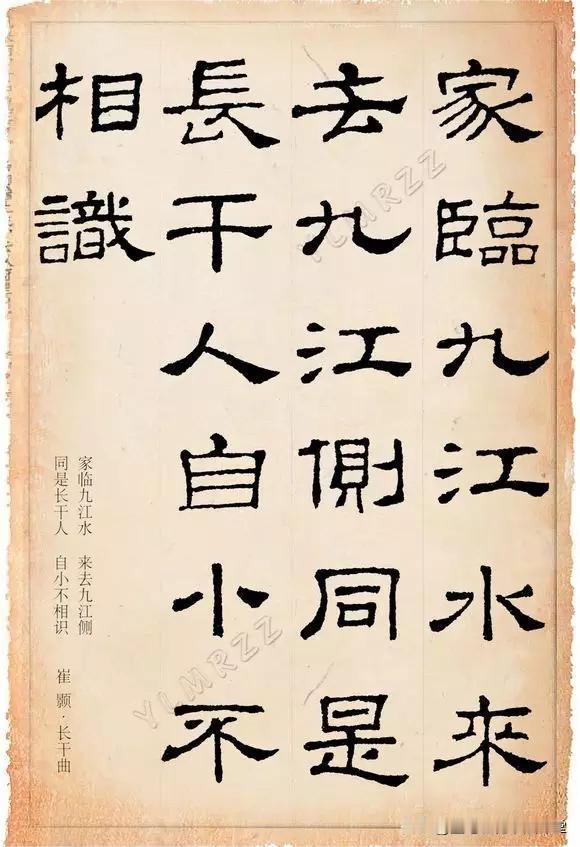 家臨九江水來
去九江側同是
長干人自小不
相識
家临九江水　来去九江侧
同是长干人　自小不相识
崔颢·长干曲
YLMRZZ
YLMRZZ